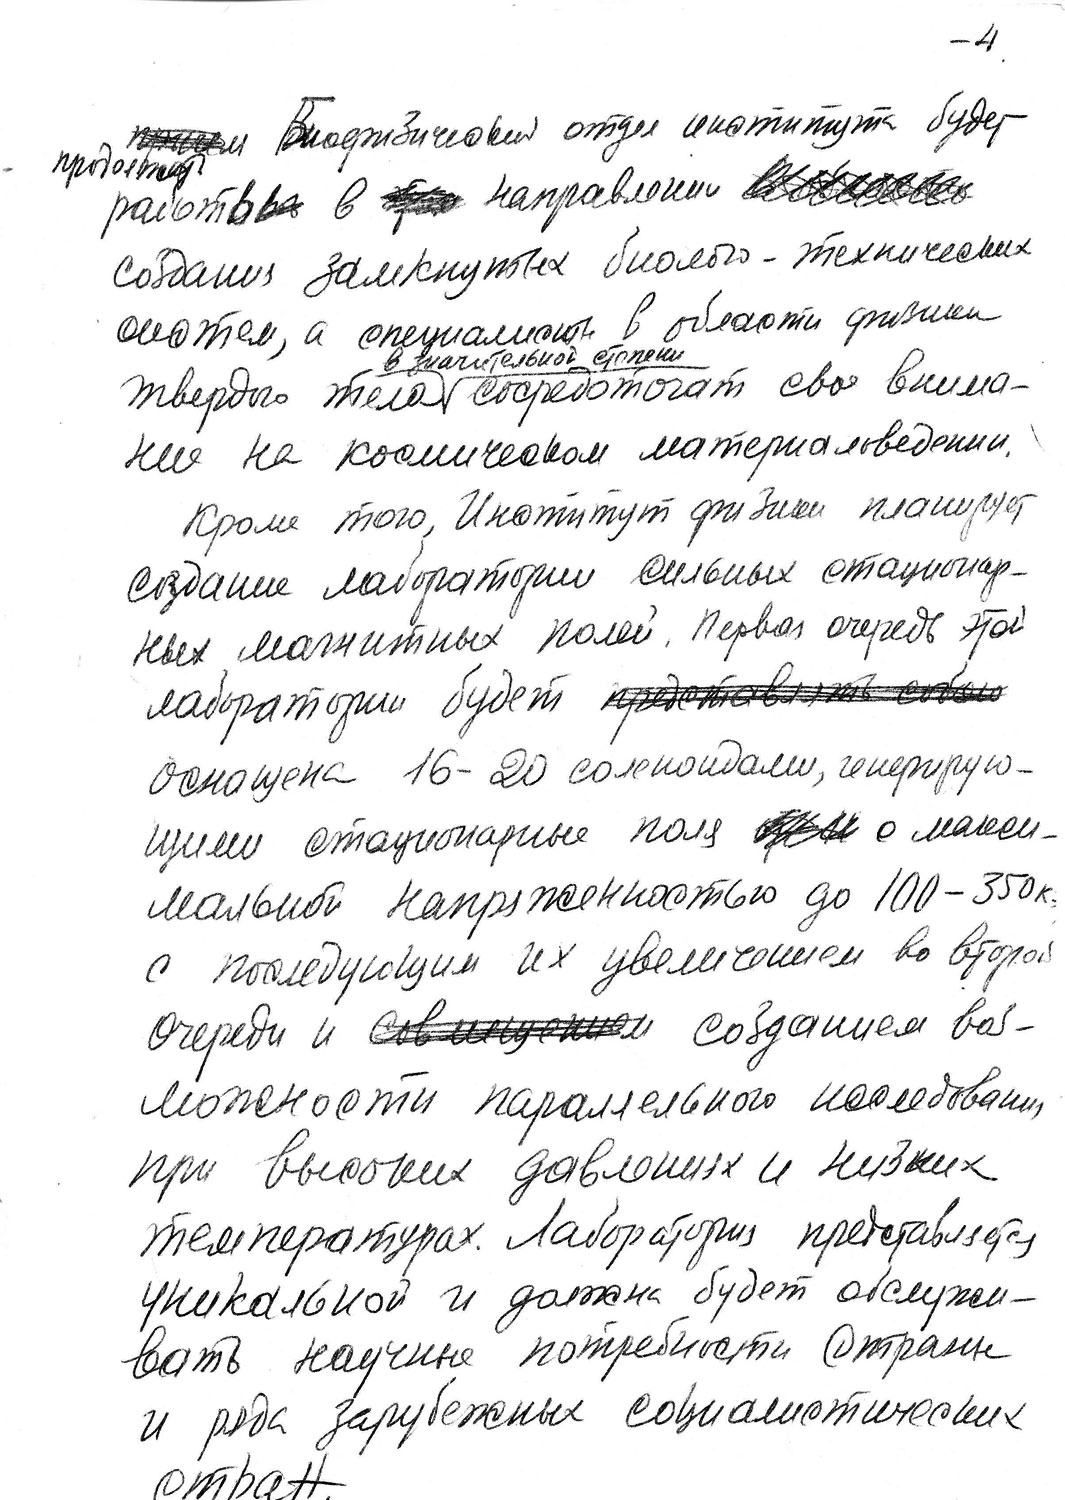 -4
Биофизический отдел института будет
продолжать
работы в направлении
создания замкнутых биолого-технических
систем, а специалисты в области физики
в значительной степени
твердого тела сосредоточат свое внима-
ние на космическом материаловедении.
Кроме того, Институт физики планирует
создание лаборатории сильных стационар-
ных магнитных полей. Первая очередь этой
лаборатории будет представлять собою
оснащена 16-20 соленоидами, генерирую-
щими стационарные поля с макси-
мальной напряженностью до 100-350 к
с последующим их увеличением во второй
очереди и совмещением созданием воз-
можности параллельного исследования
при высоких давлениях и низких
температурах. Лаборатория представляется
уникальной и должна будет обслужи-
вать научные потребности страны
и ряда зарубежных социалистических
стран.